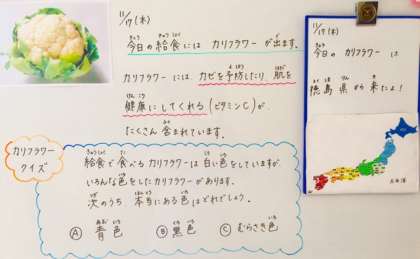 11/17(木)
今日の給食にはカリフラワーが出ます。
カリフラワーには、カゼを予防したり、肌を
健康にしてくれる(ビタミンC)が、
たくさん含まれています。
カリフラワー
クイズ
給食で食べるカリフラワーは白い色をしていますが、
いろんな色をしたカリフラワーがあります。
次のうち、本当にある色はどれでしょう。
Ⓐ 青色 Ⓑ 黒色 Ⓒ むらさき色
11/17(木)
今日のカリフラワーは
徳島県から来たよ!